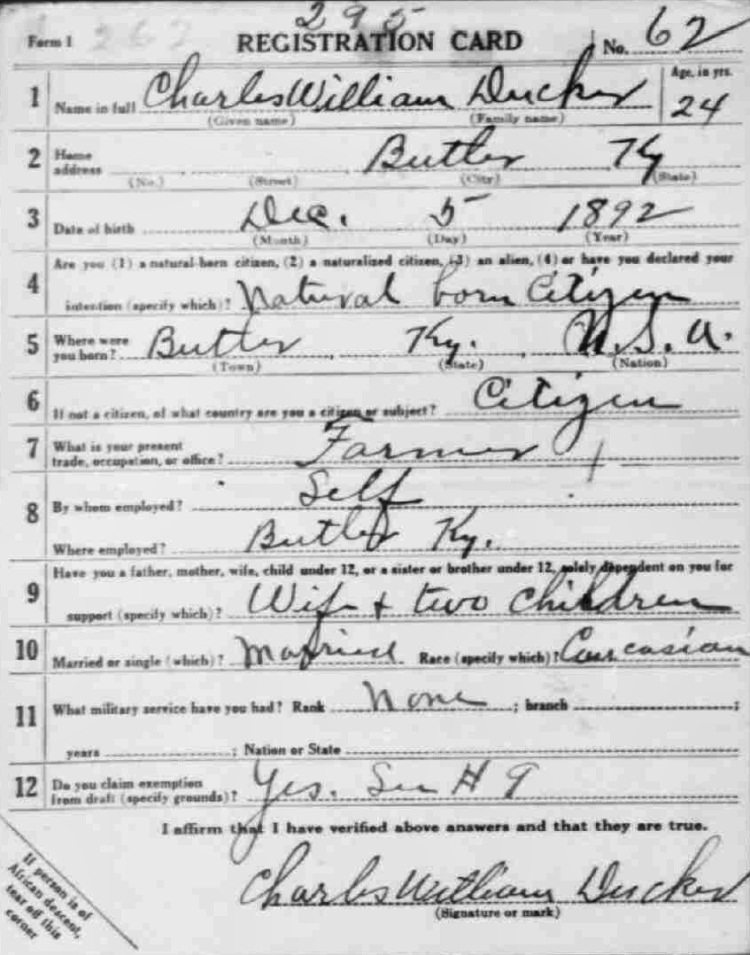 295
Form 1 267 REGISTRATION CARD No. 62
1 Name in full Charles William Ducker Age, in yrs. 24
(Given name) (Family name)
2 Home address Butler Ky
(No.) (Street) (City) (State)
3 Date of birth Dec. 5 1892
(Month) (Day) (Year)
4 Are you (1) a natural-born citizen, (2) a naturalized citizen, (3) an alien, (4) or have you declared your
intention (specify which)? Natural born Citizen
5 Where were you born? Butler Ky. U.S.A.
(Town) (State) (Nation)
6 If not a citizen, of what country are you a citizen or subject? Citizen
7 What is your present trade, occupation, or office? Farmer
8 By whom employed? Self
Where employed? Butler Ky.
9 Have you a father, mother, wife, child under 12, or a sister or brother under 12, solely dependent on you for
support (specify which)? Wife + two children
10 Married or single (which)? Married Race (specify which)? Caucasian
11 What military service have you had? Rank None ; branch ;
years ; Nation or State
12 Do you claim exemption from draft (specify grounds)? Yes. See # 9
I affirm that I have verified above answers and that they are true.
Charles William Ducker
(Signature or mark)
If person is of
African descent,
tear off this
corner